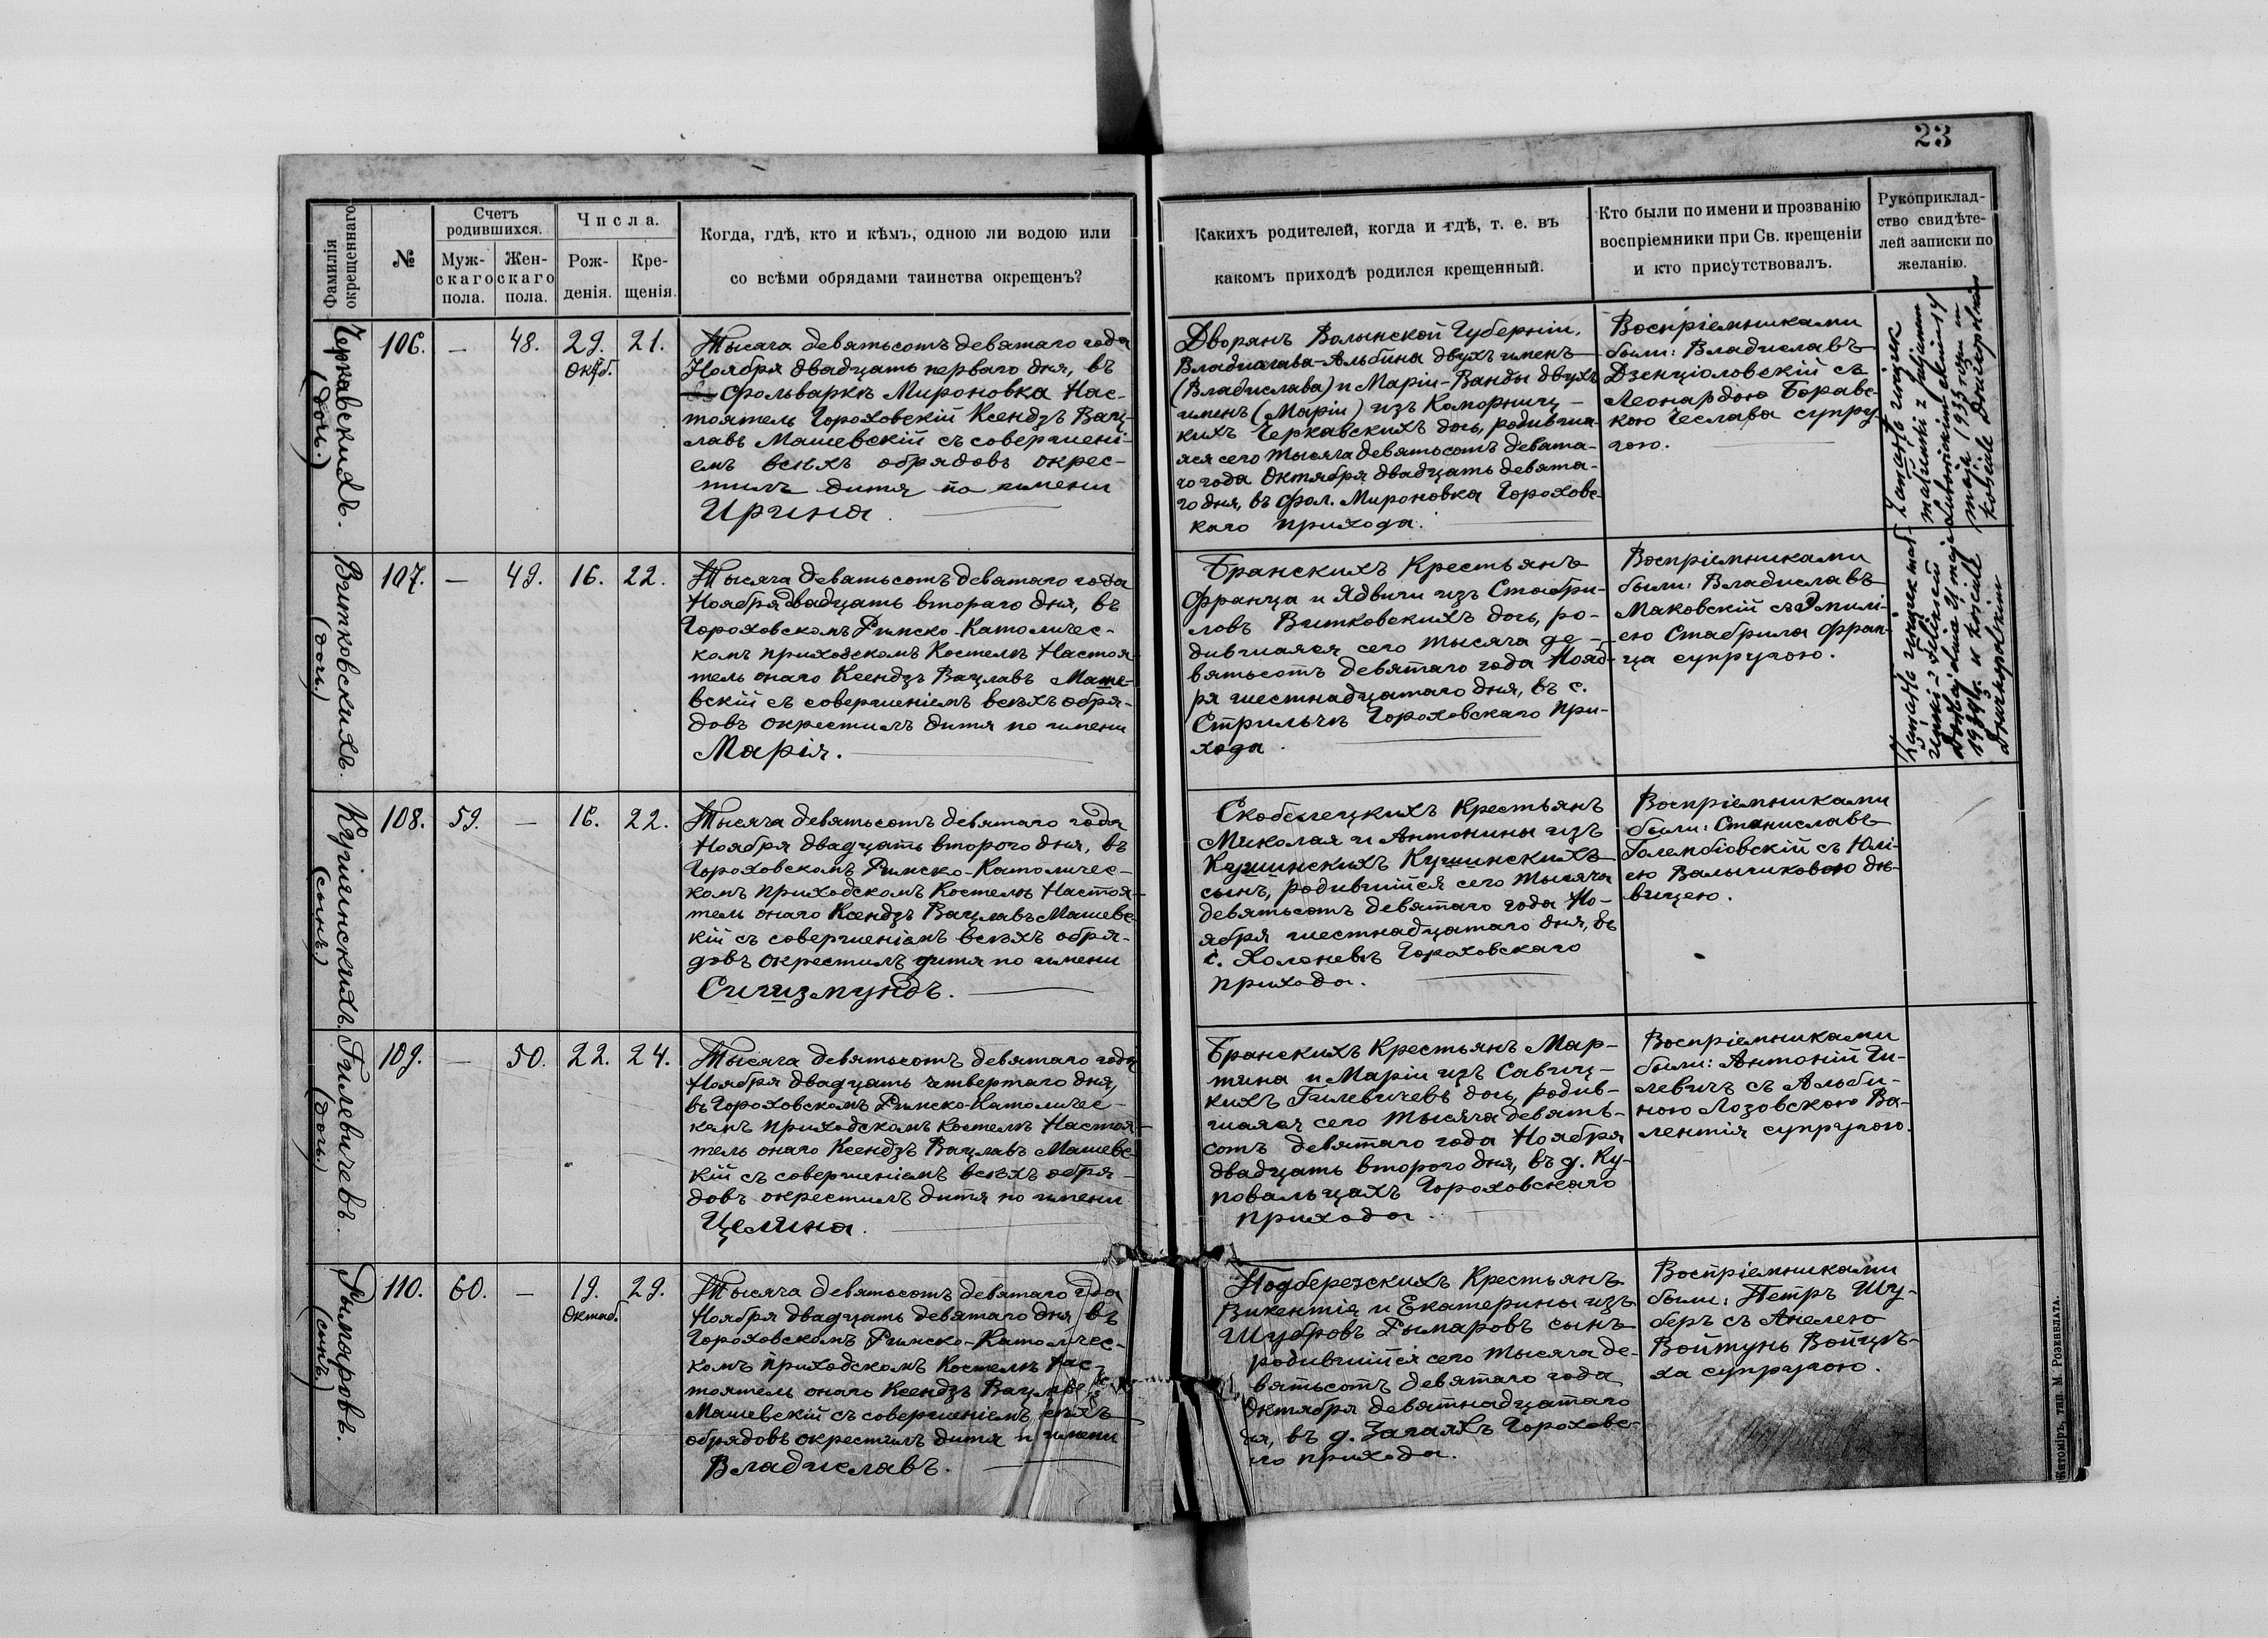 23
Фамилія
окрещеннаго
№
Счетъ
родившихся.
Муж-
скаго
пола.
Жен-
скаго
пола.
Числа.
Рож-
денія.
Кре-
щенія.
Когда, гдѣ, кто и кѣмъ, одною ли водою или
со всѣми обрядами таинства окрещенъ?
Какихъ родителей, когда и гдѣ, т. е. въ
какомъ приходѣ родился крещенный.
Кто были по имени и прозванію
воспріемники при Св. крещеніи
и кто присутствовалъ.
Рукоприклад-
ство свидѣте-
лей записки по
желанію.
Черкавскихъ.
(дочь.)
106.
—
48.
29.
Октб.
21.
Тысяча девятьсотъ девятаго года
Ноября двадцать перваго дня, въ
фольваркѣ Мироновка Нас-
тоятель Гороховскій Ксендзъ Вац-
лавъ Машевскій съ совершені-
емъ всѣхъ обрядовъ окрес-
тилъ дитя по имени
Ирина.
Дворянъ Волынской Губерніи,
Владислава-Альбина двухъ именъ
(Владислава) и Маріи-Ванды двухъ
именъ (Маріи) изъ Коморниц-
кихъ Черкавскихъ дочь, родивша-
яся сего тысяча девятьсотъ девята-
го года Октября двадцать девята-
го дня, въ фол. Мироновка Гороховс-
каго прихода.
Воспріемниками
были: Владиславъ
Дзенціоловскій съ
Леонардою Боравс-
кою Чеслава супру-
гою.
1935 roku w
kościele
Витковскихъ.
(дочь.)
107.
—
49.
16.
22.
Тысяча девятьсотъ девятаго года
Ноября двадцать втораго дня, въ
Гороховскомъ Римско-Католичес-
комъ приходскомъ Костелѣ Настоя-
тель онаго Ксендзъ Вацлавъ Маше-
вскій съ совершеніемъ всѣхъ обря-
довъ окрестилъ дитя по имени
Марія.
Бранскихъ Крестьянъ
Франца и Ядвиги изъ Стабри-
ловъ Витковскихъ дочь, ро-
дившаяся сего тысяча де-
вятьсотъ девятаго года Нояб-
ря шестнадцатаго дня, въ с.
Стрильчѣ Гороховскаго при-
хода.
Воспріемниками
были: Владиславъ
Маковскій съ Эмилі-
ею Стабрила Фран-
ца супругою.
Кушинскихъ.
(сынъ.)
108.
59.
—
16.
22.
Тысяча девятьсотъ девятаго года
Ноября двадцать второго дня, въ
Гороховскомъ Римско-Католичес-
комъ приходскомъ Костелѣ Настоя-
тель онаго Ксендзъ Вацлавъ Машевс-
кій съ совершеніемъ всѣхъ обря-
довъ окрестилъ дитя по имени
Сигизмундъ.
Скобелецкихъ Крестьянъ
Миколая и Антонины изъ
Кушинскихъ Кушинскихъ
сынъ, родившійся сего тысяча
девятьсотъ девятаго года Но-
ября шестнадцатаго дня, въ
с. Холоневѣ Гороховскаго
прихода.
Воспріемниками
были: Станиславъ
Голембіовскій съ Юлі-
ею Валычиковою дѣ-
вицею.
Гилевичевъ.
(дочь.)
109.
—
50.
22.
24.
Тысяча девятьсотъ девятаго года
Ноября двадцать четвертаго дня,
въ Гороховскомъ Римско-Католичес-
комъ приходскомъ Костелѣ Настоя-
тель онаго Ксендзъ Вацлавъ Машевс-
кій съ совершеніемъ всѣхъ обря-
довъ окрестилъ дитя по имени
Целина.
Бранскихъ Крестьянъ Мар-
тина и Маріи изъ Савиц-
кихъ Гилевичевъ дочь, родив-
шаяся сего тысяча девять-
сотъ девятаго года Ноября
двадцать второго дня, въ д. Ку-
повальцахъ Гороховскаго
прихода.
Воспріемниками
были: Антоній Ги-
левичъ съ Альби-
ною Лозовскою Ва-
лентія супругою.
Рымаровъ.
(сынъ.)
110.
60.
—
19.
Октяб.
29.
Тысяча девятьсотъ девятаго года
Ноября двадцать девятаго дня въ
Гороховскомъ Римско-Католичес-
комъ приходскомъ Костелѣ Нас-
тоятель онаго Ксендзъ Вацлавъ
Машевскій съ совершеніемъ всѣхъ
обрядовъ окрестилъ дитя п имени
Владиславъ.
Подберезскихъ Крестьянъ
Викентія и Екатерины изъ
Шубровъ Рымаровъ сынъ
родившійся сего тысяча де-
вятьсотъ девятаго года
Октября девятнадцатаго
дня, въ д. Загаяхъ Гороховс-
го прихода.
Воспріемниками
были: Петръ Шу-
беръ съ Анелею
Войтунь Войцѣ-
ха супругою.
Житоміръ, тип. М. Розенблата.